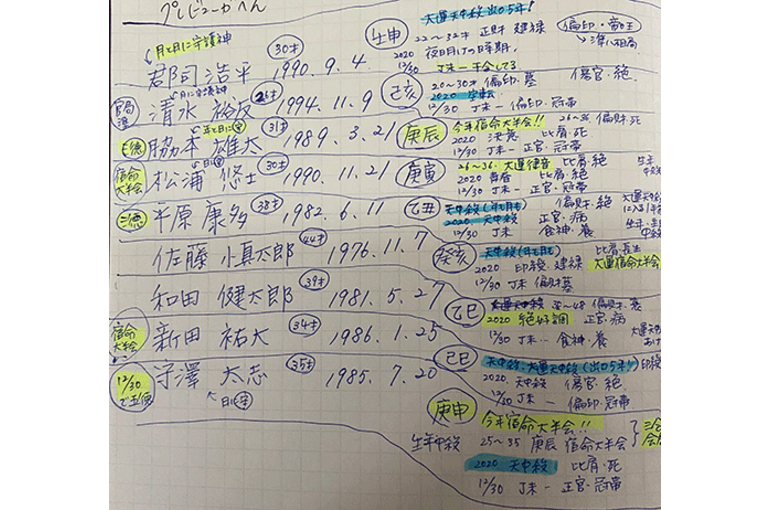 プレビューがへん
月と月に守護神
郡司 浩平 30才 1990.9.4 壬申
大運天中殺 出の5年!
22〜32才 正財 建禄
2020 夜明けの時期。
12/30 丁未 — 干合してる
偏印・帝王
官局
清水 裕友 26才 1994.11.9 己亥
月に守護神
20〜30才 偏印.墓 傷官・絶
2020 空転
12/30 丁未 — 偏印・冠帯
脇本 雄太 31才 1989.3.21 庚辰
年と月に守
今年宿命大半会!! 26〜36 偏財.死
2020 決意 比肩・死
12/30 丁未 — 正官・冠帯
宿命大半会
松浦 悠士 30才 1990.11.21 庚寅
日に守
26〜36. 大運律音 比肩・絶
2020 青春 比肩・絶
12/30 丁未 — 正官・冠帯
三徳
平原 康多 38才 1982.6.11 乙丑
天中殺(年も月も) 偏財・絶
2020 天中殺 正官・病
12/30 丁未 食神・養
佐藤 慎太郎 44才 1976.11.7 癸亥
天中殺(年も月も) 比肩・長生
2020 印綬・建禄 大運宿命大半会
12/30 丁未 偏財墓
和田 健太郎 39才 1981.5.27 乙巳
〜48 偏財・墓
2020 絶好調 正官・病
12/30 丁未… 食神・養
宿命大半会
新田 祐大 34才 1986.1.25 己巳
天中殺、大運天中殺(出の5年!!) 印綬
2020. 天中殺 傷官・絶
12/30 丁未 — 偏印・冠帯
12/30で
守澤 太志 35才 1985.7.20 庚申
日に守
今年宿命大半会!!
生年中殺 25〜35 庚辰 宿命大半会
2020 天中殺 比肩・死
12/30 丁未 — 正官・冠帯